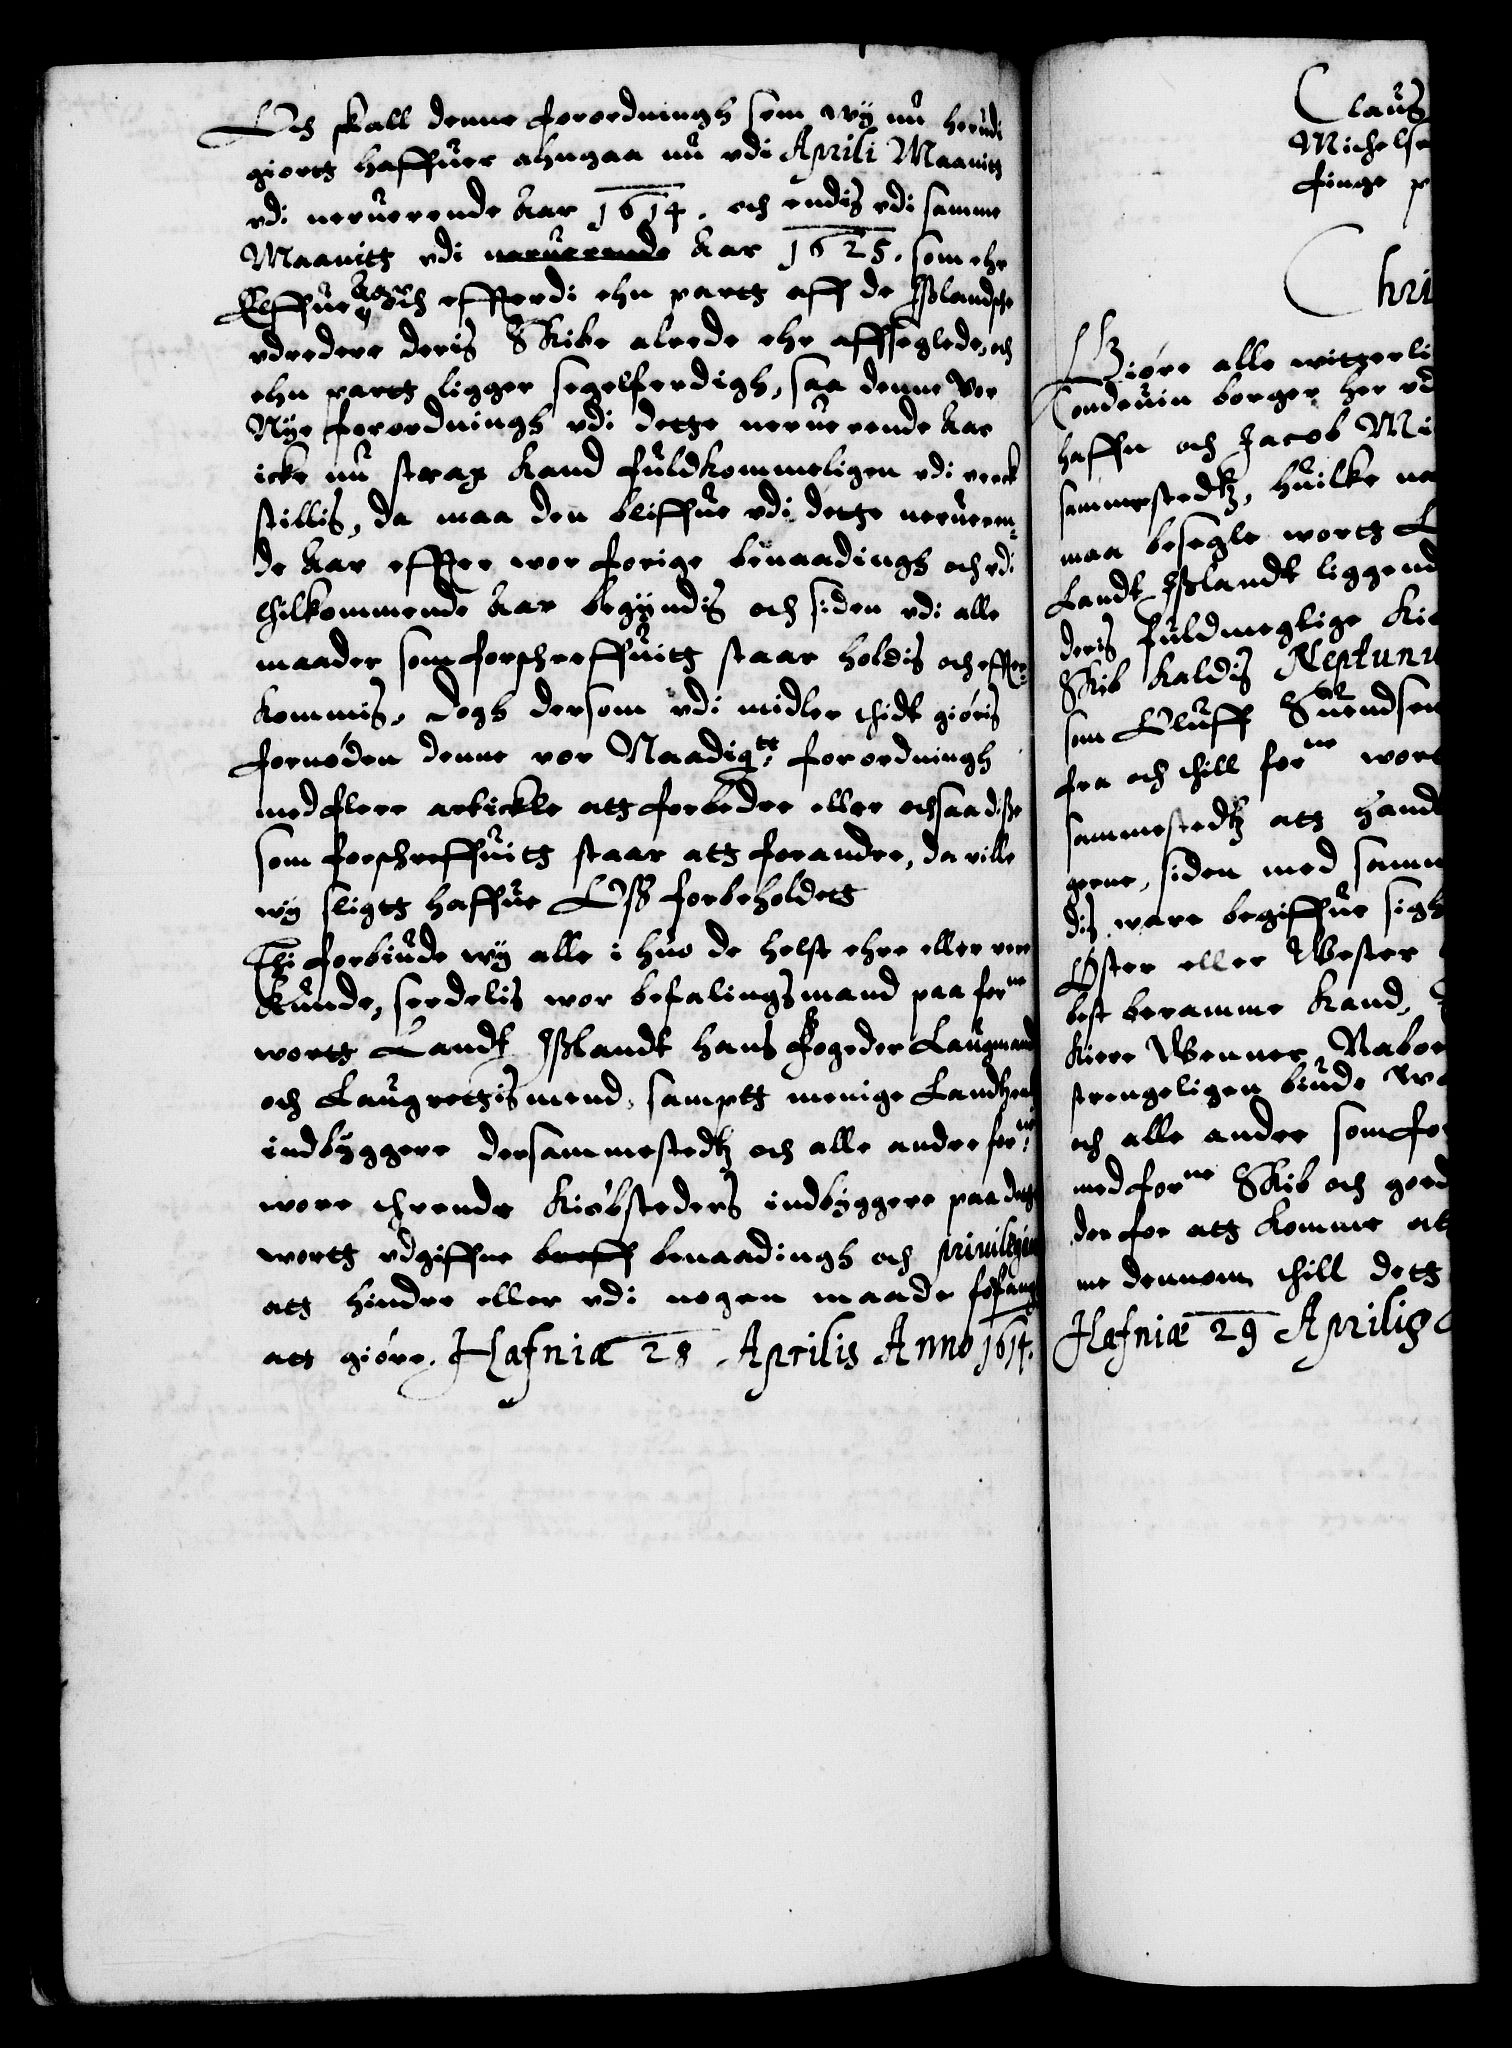 Och skall denne forordningh som wy nu herudi
giortt haffuer ahngaa nu udi Aprili Maanitt
udi neruerende Aar 1614. och endis udi samme
Maanitt udi neruerende Aar 1625. som ehr
Elffue Aar och efftterdi ehn partt aff de Ißlandsche
udredere deris Skibe alrede ehr affseglede, och
ehn partt ligger segelferdigh, saa denne vor
Nye forordningh udi dette neruerende Aar
icke nu strax kand fuldkommeligen udi verck
stillis, da maa den bliffue udi dette nerueren¬
de Aar effter wor forige benaadingh och udi
thilkommende Aar begyndis och siden udi alle
maader som forschreffuitt staar holdis och effter¬
kommis, Dogh dersom udi midler thidt giøris
fornøden denne vor Naadigtt: forordningh
med flere artickle att forbedre eller ochsaa diße
som forschreffuitt staar att forandre, da ville
wy sligtt haffue Oß forbeholdett
Thi forbiude wy alle i huo de helst ehre eller vere
kunde, serdelis wor befalingsmand paa forne
wortt Landt Ißlandt hans fogeder Laugmand
och Laugrettismend, samptt menige Landsens
indbyggere dersammestedtz och alle andre forne:
wore thrende Kiøbsteders indbyggere paa dette
wortt udgiffne breff benaadingh och priuilegier
att hindre eller udi nogen maade forfang
att giøre. Hafniæ 28 Aprilis Anno 1614.
Claus
Michelse
finge p
Chri
Giøre alle witterli
Condeuin borger her ud
haffn och Jacob Mi
sammestedtz, huilke na
maa besegle wortt
Landt Ißlandt liggend
deris fuldmeglige
Skib kaldis Neptunu
som Oluff Suendsen
fra och thill forne wort
sammestedtz att hand
gerne, siden med samm
dis ware begiffue sigh
Øster eller Wester
best beramme kand,
kiere Wenner, Nabor
strengeligen biude
och alle andre som fo
med forne Skib och
der for att komme att
me dennom thill dett
Hafniæ 29 Aprilis